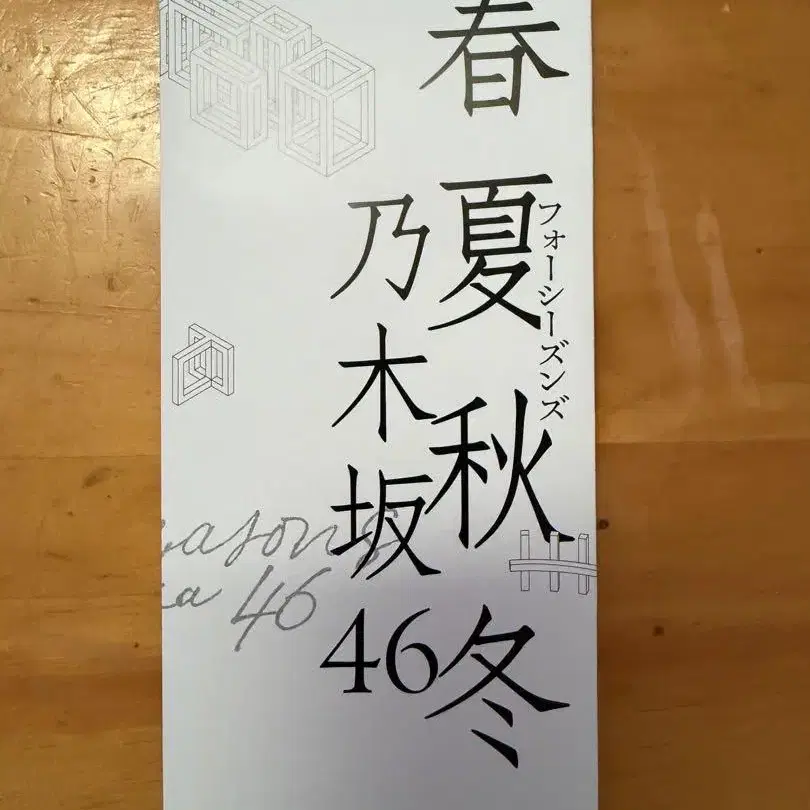 春夏秋冬
フォーシーズンズ
乃木坂46
asons
a 46